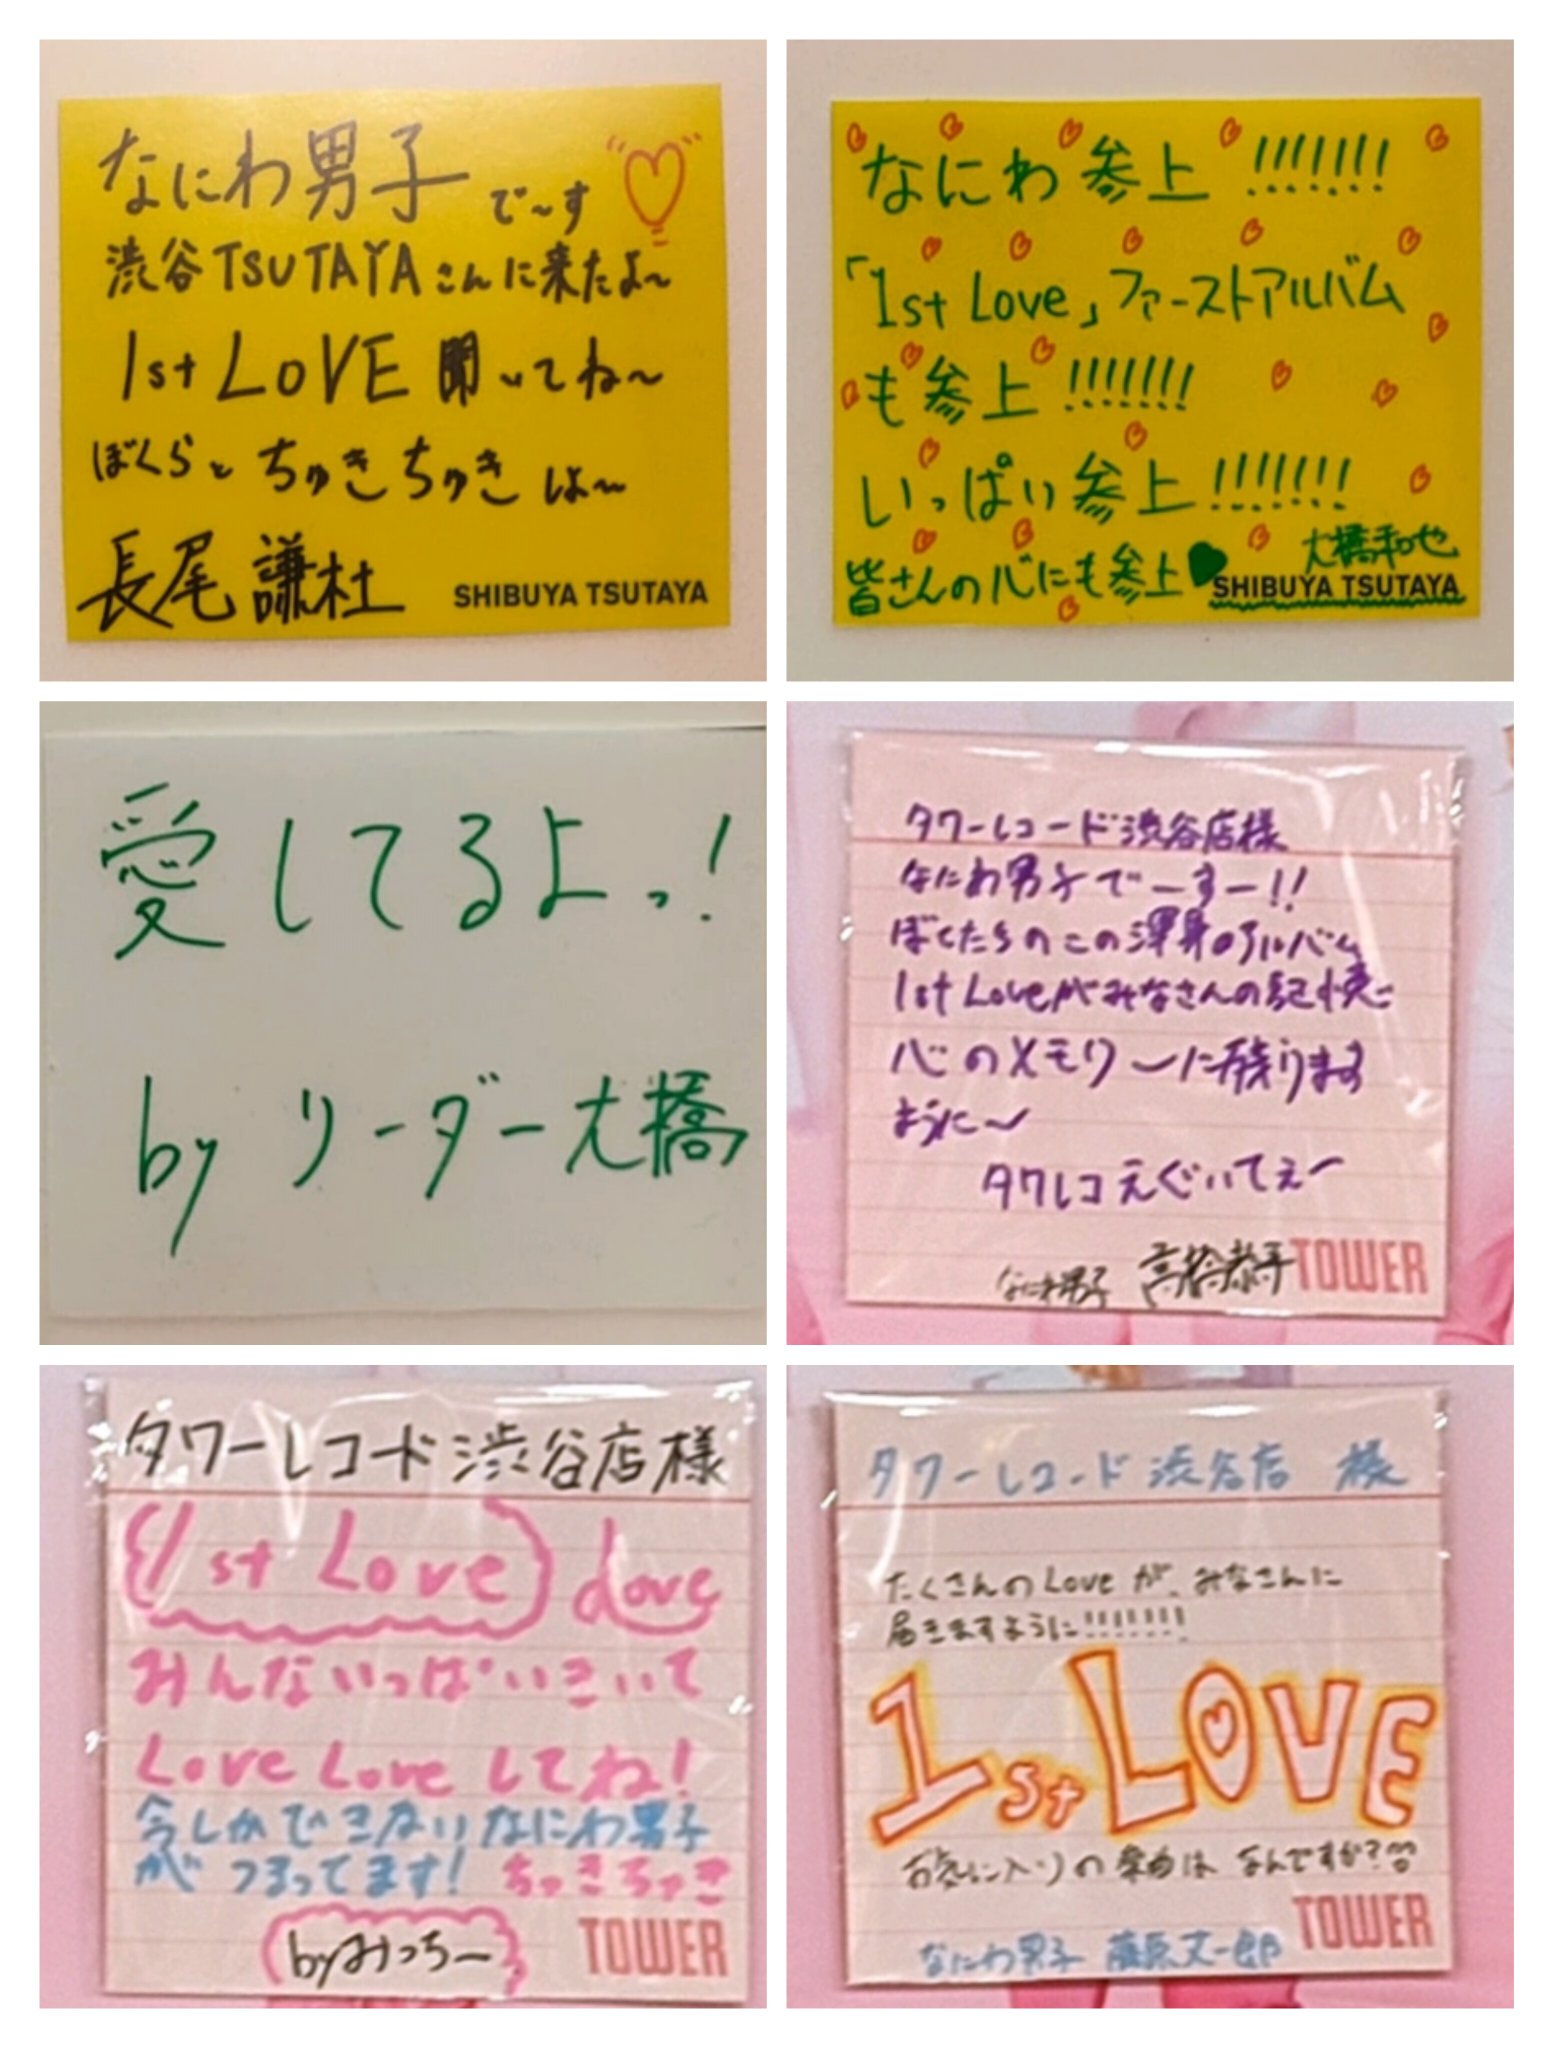 なにわ男子 で〜す
渋谷TSUTAYAさんに来たよ〜
1st LOVE 聞いてね〜
ぼくらと ちゅきちゅき しよ〜
長尾謙杜
SHIBUYA TSUTAYA
なにわ参上 !!!!!!!
「1st Love」ファーストアルバム
も参上 !!!!!!!
いっぱい参上 !!!!!!!
皆さんの心にも参上♥ 大橋和也
SHIBUYA TSUTAYA
愛してるよっ!
by リーダー大橋
タワーレコード渋谷店様
なにわ男子でーすー!!
ぼくたちのこの渾身のアルバム
1st Loveがみなさんの記憶に
心のメモリーに残ります
ように〜
タワレコえぐいてぇー
なにわ男子 高橋恭平
TOWER
タワーレコード渋谷店様
1st Love Love
みんないっぱいきいて
Love Love してね!
今しかできないなにわ男子
がつまってます! ちゅきちゅき
byみっちー
TOWER
タワーレコード 渋谷店 様
たくさんのLoveが、みなさんに
届きますように!!!!!!!
1st LOVE
お気に入りの楽曲は なんですか?
TOWER
なにわ男子 藤原丈一郎